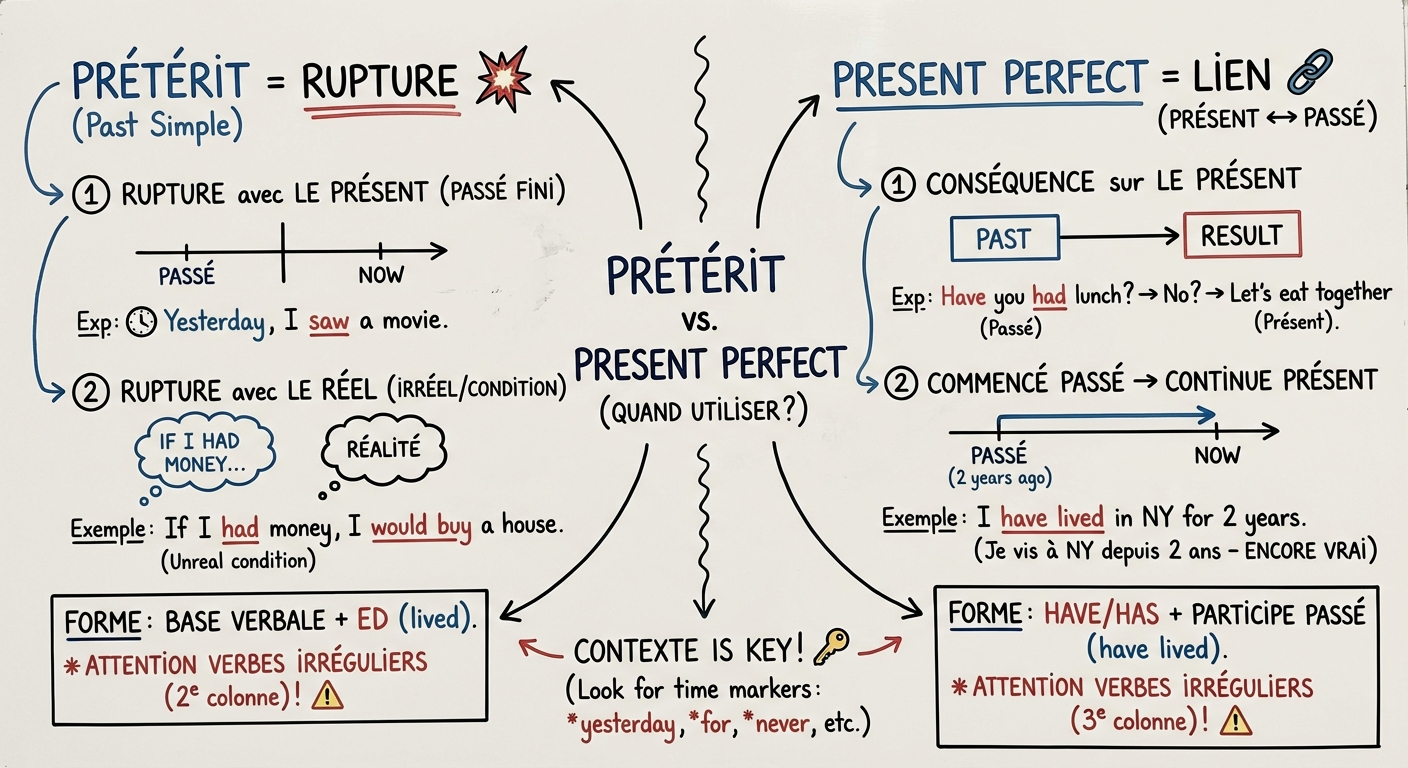 PRÉTÉRIT = RUPTURE
(Past Simple)
① RUPTURE avec LE PRÉSENT (PASSÉ FINI)
PASSÉ NOW
Exp: Yesterday, I saw a movie.
② RUPTURE avec LE RÉEL (IRRÉEL/CONDITION)
IF I HAD
MONEY...
RÉALITÉ
Exemple: If I had money, I would buy a house.
(Unreal condition)
FORME: BASE VERBALE + ED (lived).
*ATTENTION VERBES IRRÉGULIERS
(2e colonne)!
PRÉTÉRIT
VS.
PRESENT PERFECT
(QUAND UTILISER?)
CONTEXTE IS KEY!
(Look for time markers:
*yesterday, *for, *never, etc.)
PRESENT PERFECT = LIEN
(PRÉSENT ↔ PASSÉ)
① CONSÉQUENCE sur LE PRÉSENT
PAST → RESULT
Exp: Have you had lunch? → No? → Let's eat together
(Passé) (Présent).
② COMMENCÉ PASSÉ → CONTINUE PRÉSENT
PASSÉ NOW
(2 years ago)
Exemple: I have lived in NY for 2 years.
(Je vis à NY depuis 2 ans – ENCORE VRAI)
FORME: HAVE/HAS + PARTICIPE PASSÉ
(have lived).
*ATTENTION VERBES IRRÉGULIERS
(3e colonne)!